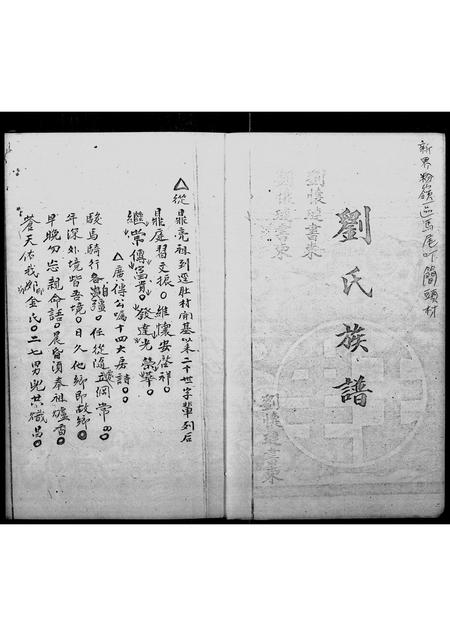 新界粉嶺區馬尾下簡頭村
劉氏族譜
劉懷璉書柬
劉懷璉書柬
劉懷璉書柬
△從鼎亮祖到逕肚村開基以来二十世字輩列后
鼎庭習文振。維懷安啓祥。
繼常傳富貴。發達光榮華。
△廣傳公嘱十四大房詩。
駿馬騎行各 疆。任從隨 綱常。
年深外境皆吾境。日久他鄉即故鄉。
早晚勿忘親命語。晨昏湏奉祖爐香。
蒼天佑我 金氏。二七男児共熾昌。